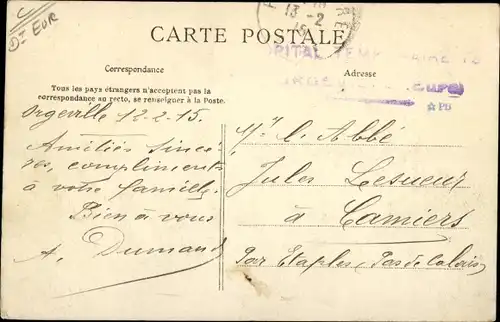 Dt EUR
13-2
15
CARTE POSTALE
Correspondance
Adresse
Tous les pays étrangers n'acceptent pas la
correspondance au recto, se renseigner à la Poste.
☆PB
Orgeville 12-2-15.
Amitiés sincè-
res, compliments
à votre famille.
Bien à vous
A. Dumand
Mr l'Abbé
Jules Lesueur
à Camiers
Par Etaples, Pas de Calais